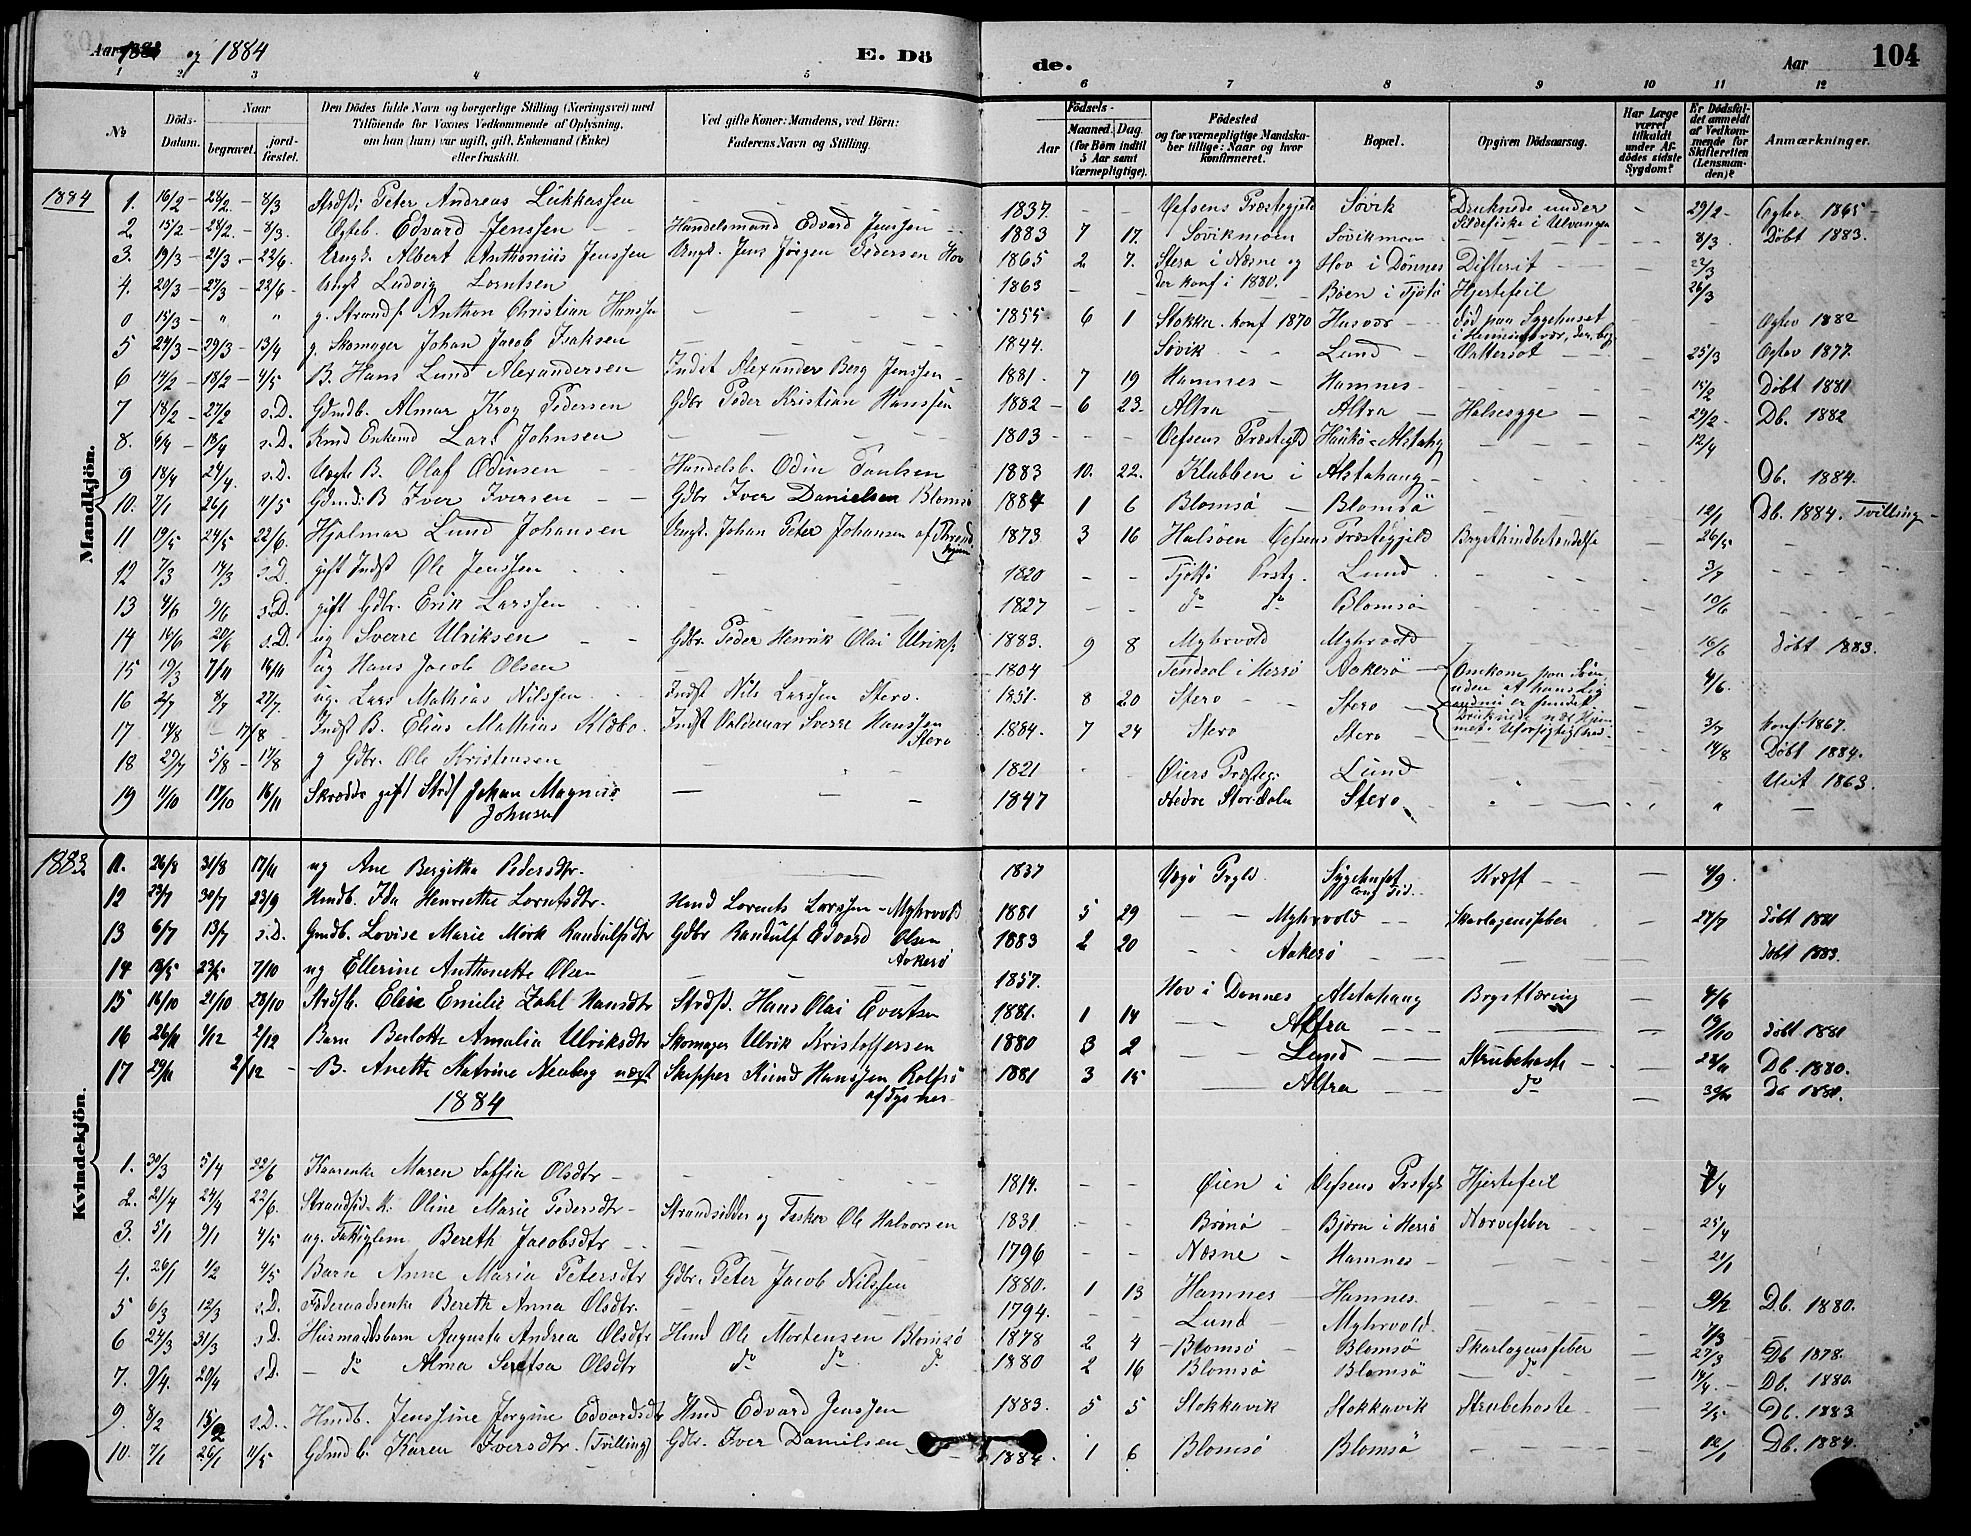 Aar 1883 og 1884 E. Dö
de. Aar 104
1 2 3 4 5 6 7 8 9 10 11 12
№ Döds-Datum. Naar begravet. jordfæstet. Den Dödes fulde Navn og borgerlige Stilling (Næringsvei) med Tilföiende for Voxnes Vedkommende af Oplysning, om han (hun) var ugift, gift, Enkemand (Enke) eller fraskilt. Ved gifte Koner: Mandens, ved Börn: Faderens Navn og Stilling. Födsels- Aar Maaned. Dag. (for Börn indtil 5 Aar samt Værnepligtige). Födested og for værnepligtige Mandskaber tillige: Naar og hvor konfirmeret. Bopæl. Opgiven Dödsaarsag. Har Læge været tilkaldt under Afdödes sidste Sygdom? Er Dödsfaldet anmeldt af Vedkommende for Skifteretten (Lensmanden)? Anmærkninger.
Mandkjön.
1884 1. 16/2 – 24/2 – 8/3 Peter Andreas Lukkassen – 1837 – – Vefsens Præstegjeld Søvik Druknede under Sildefiske i Ulvangen – 29/2 – Ogtev 1865 –
2 15/2 – 24/2 – 8/3. Edvard Jenssen – Handelsmand Edvard Jenssen – 1883 7 17. Søvikmoen Søvikmoen – – 8/3 Döbt 1883.
3. 19/3 – 21/3 – 22/6 Ungk. Albert Anthonius Jenssen Ungk. Jens Jörgen Pedersen Hov 1865 2 7. Stera i Næsne og der konf i 1880. Hov i Dönnes Difterit – 22/3
4. 20/3 – 27/3 – 22/6 – Ungk Ludvig Lorntsen 1863 – – Böen i Tjötö Hjertefeil 26/3
0 15/3 – " " g. Strands. Anthon Christian Hanssen – 1855 6 1 Stokka. konf 1870 Husvær – död paa Sygehuset i Henningsvær, der beg. – Ogtev 1882
5 24/3 – 29/3 – 13/4 g. Skomager Johan Jacob Isaksen – 1844. Søvik – Lund – Vattersot – 25/3 Ogtev 1877.
6 14/2 – 18/2 – 4/5 B. Hans Lund Alexandersen Indst Alexander Berg Jenssen – 1881. 7 19 Hamnes – Hamnes – 15/2 Döbt 1881
7 18/2 – 27/2 s.D. Gdmdb. Almar Krog Pedersen Gdbr Peder Kristian Hanssen 1882 – 6 23. Altra – Altra – Halsesyge – 29/2 – Db. 1882
8. 18/4 s.D. Enkemd Lars Johnsen – 1803 – – – Vefsens Præstegjld Haukö – Alstahg – 12/4
9 18/4 24/4. s.D. Uægte B. Olaf Odinsen – Handelsb. Odin Paulsen 1883 10. 22. Klubben i Alstahaug – Db. 1884.
10. 7/1 26/1 11/5 Gdmd. B Iver Iversen – Gdbr Iver Danielsen Blomsö 1884 1 6 Blomsö – Blomsö – 12/1 Db. 1884. Tvilling –
11 19/5 24/5 22/6. Hjalmar Lund Johansen Ungk. Johan Peter Johansen af Thrond 1873 3 16 Halsöen Vefsens Præstegjeld Brysthindbetændelse 26/5 –
12 7/3 14/3 s.D. gift Indst Ole Jenssen – 1820 – – Tjöttö Prstg. Lund 3/7
13 4/6 9/6 s.D. gift Gdbr. Erik Larssen – 1827 – – do do Blomsö – 10/6 –
14 16/6 20/6 s.D. ug Sverre Ulriksen – Gdbr. Peder Henrik Olai Ulriks. 1883. 9 8 Myhrvold Myhrvold – 16/6 döbt 1883.
15 19/3 7/11 16/11 ug Hans Jacob Olsen – 1804 i Herrö Aakerö Omkom paa Søen uden at hans Lig endnu er fundet 4/6.
16 2/7 8/7 27/7. ug. Lars Mathias Nilssen Indst Nils Larssen Stero. 1851. 8 20 Stero – Stero – Druknede nær Hjemmet. Uforsigtighed – 3/7 konf. 1867.
17 14/8 – 17/8 – Indst B. Elias Mathias Klæbo. Indst Valdemar Sverre Hanssen Stero 1884. 7 24 Stero Stero 14/8 Döbt 1884.
18 29/7 5/8 – 17/8 g Gdbr. Ole Kristensen 1821 Öiers Præsteg: Lund – Viet 1863.
19 11/10 17/10 16/11 Skrædder gift Strds Johan Magnus Johnsen – 1847 Nedre Stördalen Stero. " – " –
Kvindekjön.
1883 11. 26/8 31/8 17/11 ug Ane Bergitha Pedersdtr. – 1837 Vægö Prgld. Sygehuset Kræft – 4/9.
12 23/7 30/7 23/9 Hmdb. Ida Henriette Lorntsdtr. Hmd Lorents Larssen – Myhrvold 1881 5 29 – Myhrvold – Skarlagensfeber – 27/7 döbt 1881
13 6/7 13/7 s.D. Gmdb. Lovise Marie Mörk Randulfsdtr Gdbr Randulf Edvard Olsen Aakerø 1883 2 20 – Aakerø – döbt 1883.
14 13/5 23/5 7/10 ug Ellerine Anthonette Olsen – 1857. Hov i Dönnes Alstahaug Brysttæring 4/6
15 16/10 21/10 28/10 Strdsb. Elise Emilie Zahl Hansdtr Strdsd. Hans Olai Evertsen 1881. 1 14 – Altra – 19/10 döbt 1881
16 26/11 4/12 2/12 Barn Berlotte Amalia Ulriksdtr Skomager Ulrik Kristoffersen 1880 3 2 – Lund – Strubehoste – 28/11 Db. 1880.
17 29/11 2/12 – B. Anette Katrine Neuberg uægt Skipper Knud Hanssen Rolfsö af Dysnes 1881 3 15 – Altra do – 30/11 Db 1881.
1884
1. 30/3 5/4 22/6 Kaarenke Maren Soffia Olsdtr – 1814. – – Öien i Vefsens Prstgd Hjertefeil 7/4
2. 21/4 24/4 22/6. Strandsid. K. Oline Marie Pedersdtr – Strandsidder og Fisker Ole Halvorsen 1831. – – Brönö – Björn i Herrö Nervefeber – 25/4
3. 5/1 9/1 4/5 ug. Fattiglem Bereth Jacobsdtr – 1796 – – Næsne – Hamnes – 21/1
4. 26/1 1/2 4/5 Barn Anne Maria Petersdtr Gdbr. Peter Jacob Nilssen 1880. 1 13 Hamnes – Hamnes. 9/2 Db. 1880.
5 6/3 12/3 s.D. Föderaadsenke Bereth Anna Olsdtr. – 1794. Lund – Myhrvold. – 7/3
6 24/3 31/3 s.D. Husmandsbarn Augusta Andrea Olsdtr Hmd Ole Mortensen Blomsö 1878 2 4 – Blomsö – Blomsö Skarlagensfeber – 27/3 Db 1878.
7. 9/4. 20/4 s.D. – do Alma Olsdtr do do do 1880 2 16 Blomsö Blomsö – do – 14/4 – Db. 1880.
9. 8/2 15/2 s.D. Hmdb. Jenssine Jorgine Edvardsdtr Hmd Edvard Jenssen 1883. 5 5 Stokkavik Stokkavik Strubehoste – 2/5 Db. 1883
10. 7/1 26/1 11/5 Gdmdb. Karen Iversdtr. (Tvilling) Gdbr. Iver Danielsen – 1884. 1 6 Blomsö Blomsö – 12/1 Db. 1884.